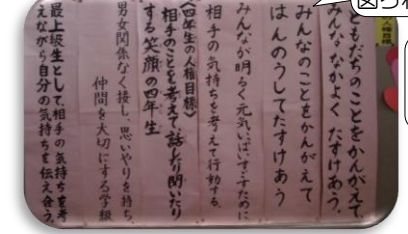 図ら
人権目標
ともだちのことをかんがえて、
みんななかよく たすけあう。
みんなのことをかんがえて
はんのうしてたすけあう
みんなが明るく元気いっぱいすごすために
相手の気持ちを考えて行動する。
〈四年生の人権目標〉
相手のことを考えて話したり聞いたり
する笑顔の四年生
男女関係なく接し、思いやりを持ち、
仲間を大切にする学級
最上級生として、相手の気持ちを考
えながら自分の気持ちを伝え合う。